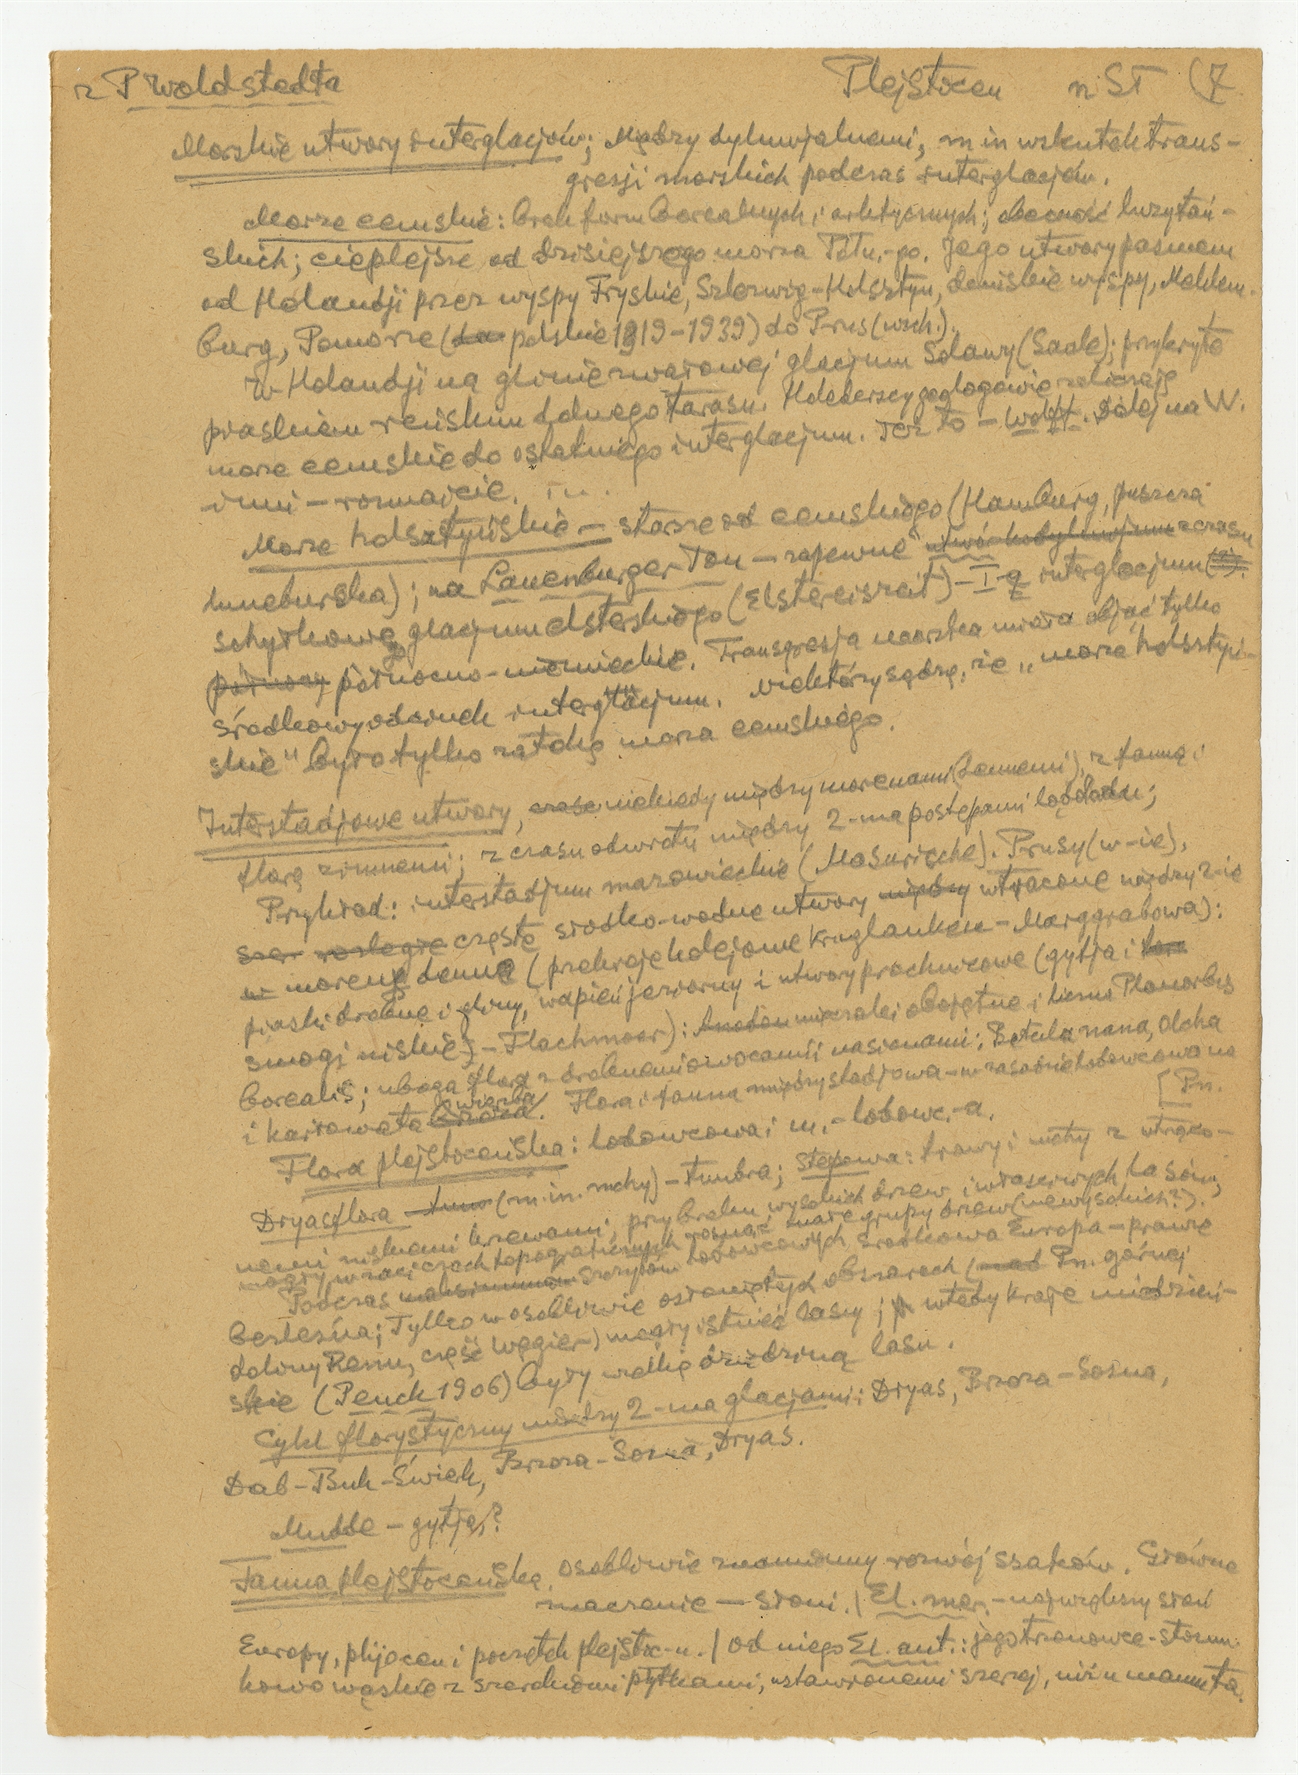 z P Woldstedta Plejstocen n ST (7
Morskie utwory interglacjów; Między dyluwjalnemi, m in wskutek trans-
gresji morskich podczas interglacjów.
Morze eemskie: brak form borealnych i arktycznych; obecność luzytań-
skich; cieplejsze od dzisiejszego morza Półn.-go. Jego utwory pasmem
od Holandji przez wyspy Fryskie, Szlezwig-Holsztyn, duńskie wyspy, Meklem-
burg, Pomorze (polskie 1919-1939) do Prus (wsch.).
W Holandji na glinie zwałowej glacjum Solawy (Saale); przykryte
piaskiem reńskim dolnego tarasu. Holenderscy geologowie zaliczają
morze eemskie do ostatniego interglacjum. Też to - Woldt. Dalej na W.
inni - rozmaicie.
Morze holsztyńskie - starsze od eemskiego (Hamburg, puszcza
luneburska); na Lauenburger Ton - zapewne z czasu
schyłkowego glacjum elsterskiego (Elstereiszeit) - I-g interglacjum
północno-niemieckie. Transgresja morska miała objąć tylko
środkowy odcinek interglacjum. Niektórzy sądzą, że "morze holsztyń-
skie" było tylko zatoką morza eemskiego.
Interstadjowe utwory, niekiedy między morenami (dennemi), z fauną i
florą zimnemi; z czasu odwrotu między 2-ma postępami lądolodu;
Przykład: interstadjum mazowieckie (Masurische). Prusy (w-ie),
częste słodko-wodne utwory wtrącone między 2-ie
moreny denne (przekroje kolejowe Kruglanken-Marggrabowa):
piaski drobne i gliny, wapień jeziorny i utwory próchnicowe (gytja i
niskie} - Flachmoor): obojętne i liczne Planorbis
borealis; uboga flora z drobnemi owocami i nasionami: Betula nana, Olcha
i karłowata wierzba. Flora i fauna międzystadjowa - w zasadzie lodowcowa na
[Pn.
Flora plejstoceńska: lodowcowa i m.-lodowc.-a.
Dryasflora (m.in. mchy) - tundra; stepowa: trawy i mchy z wtrąco-
nemi niskiemi krzewami; przy braku wysokich drzew i właściwych lasów;
mogły w zaciszach topograficznych rosnąć małe grupy drzew (niewysokich?).
Podczas szczytów lodowcowych środkowa Europa - prawie
bezleśna; tylko w osobliwie osłoniętych obszarach (Pn. górnej
doliny Renu, część Węgier) mogły istnieć lasy; wtedy kraje
skie (Penck 1906) były wielką dziedziną lasu.
Cykl florystyczny między 2-ma glacjami: Dryas, Brzoza-Sosna,
Dąb-Buk-Świerk, Brzoza-Sosna, Dryas.
Mudde - gytja?
Fauna plejstoceńska, osobliwie znamienny rozwój ssaków. Główne
znaczenie - słoni. / El. mer. - największy słoń
Europy, plijocen i początek plejstoc-u. / Od niego El. ant.: jego trzonowce - stosun-
kowo wąskie z szerokiemi płytkami, ustawionemi szerzej, niż u mamuta.